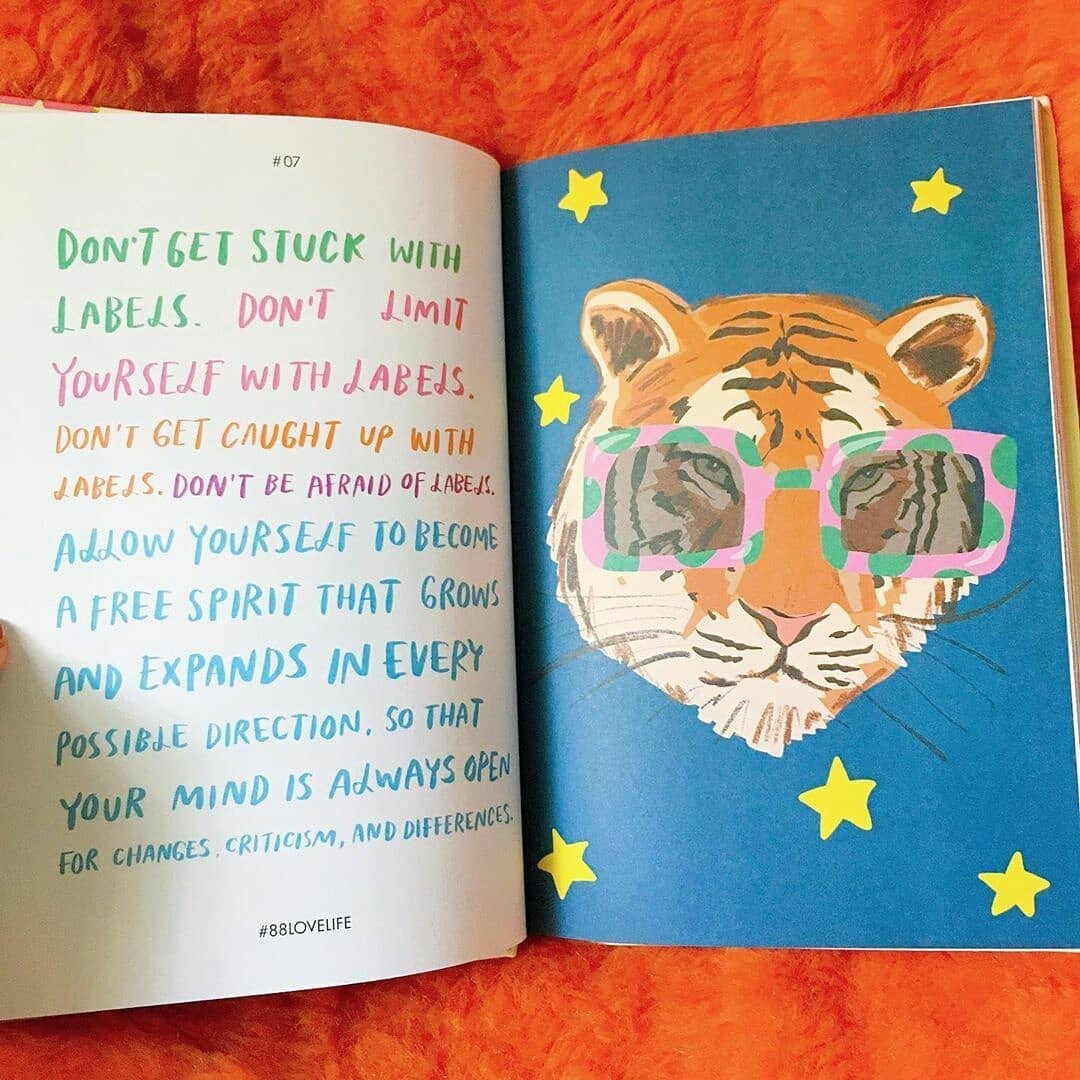 #07
DON'T GET STUCK WITH
LABELS. DON'T LIMIT
YOURSELF WITH LABELS.
DON'T GET CAUGHT UP WITH
LABELS. DON'T BE AFRAID OF LABELS.
ALLOW YOURSELF TO BECOME
A FREE SPIRIT THAT GROWS
AND EXPANDS IN EVERY
POSSIBLE DIRECTION, SO THAT
YOUR MIND IS ALWAYS OPEN
FOR CHANGES, CRITICISM, AND DIFFERENCES.
#88LOVELIFE